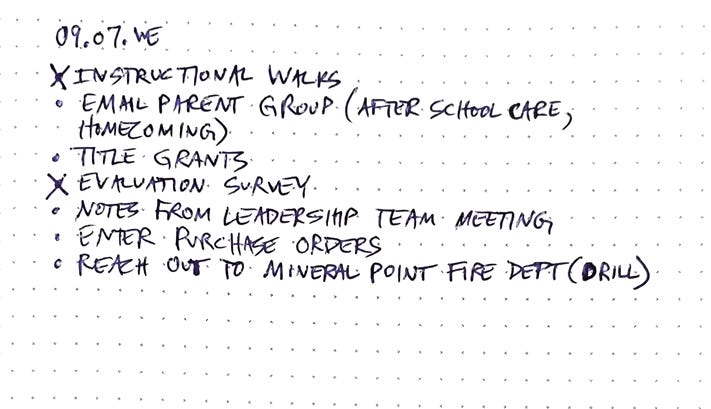 09.07.WE
X INSTRUCTIONAL WALKS
• EMAIL PARENT GROUP (AFTER SCHOOL CARE,
HOMECOMING)
• TITLE GRANTS
X EVALUATION SURVEY
• NOTES FROM LEADERSHIP TEAM MEETING
• ENTER PURCHASE ORDERS
• REACH OUT TO MINERAL POINT FIRE DEPT (DRILL)